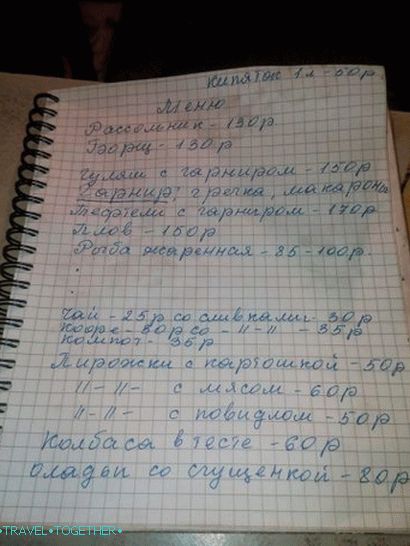 кипяток 1л - 50р.
Меню
Рассольник - 130р
Борщ - 130р
Гуляш с гарниром - 150р
Гарнир: гречка, макароны
Тефтели с гарниром - 170р
Плов - 150р
Рыба жаренная - 85 - 100р.
Чай - 25р со сливками - 30р
Кофе - 30р со - 11-11 - 35р
Компот - 35р
Пирожки с картошкой - 50р
11-11- с мясом - 60р
11-11- с повидлом - 50р
Колбаса в тесте - 60р
Оладьи со сгущенкой - 80р
•TRAVEL•TOGETHER•